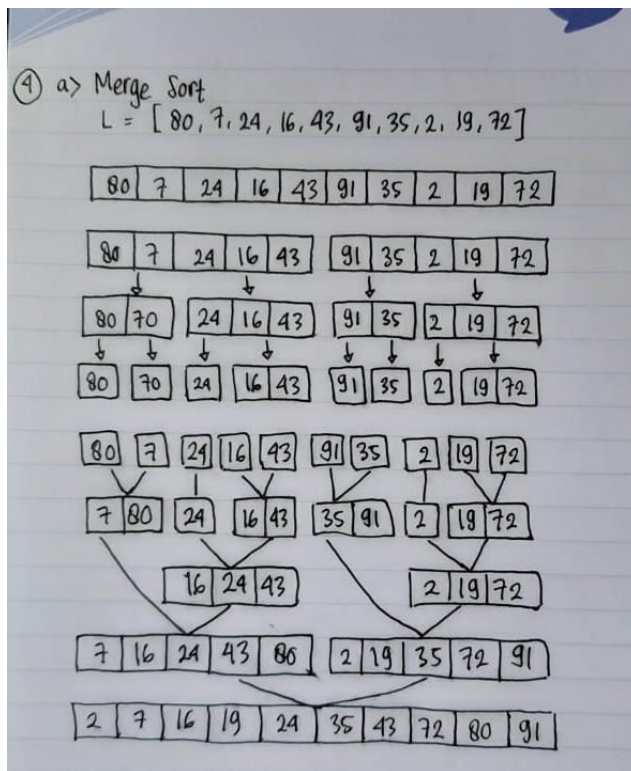 ④ a> Merge Sort
L = [80, 7, 24, 16, 43, 91, 35, 2, 19, 72]
80 7 24 16 43 91 35 2 19 72
80 7 24 16 43 91 35 2 19 72
80 70 24 16 43 91 35 2 19 72
80 70 24 16 43 91 35 2 19 72
80 7 24 16 43 91 35 2 19 72
7 80 24 16 43 35 91 2 19 72
16 24 43 2 19 72
7 16 24 43 80 2 19 35 72 91
2 7 16 19 24 35 43 72 80 91